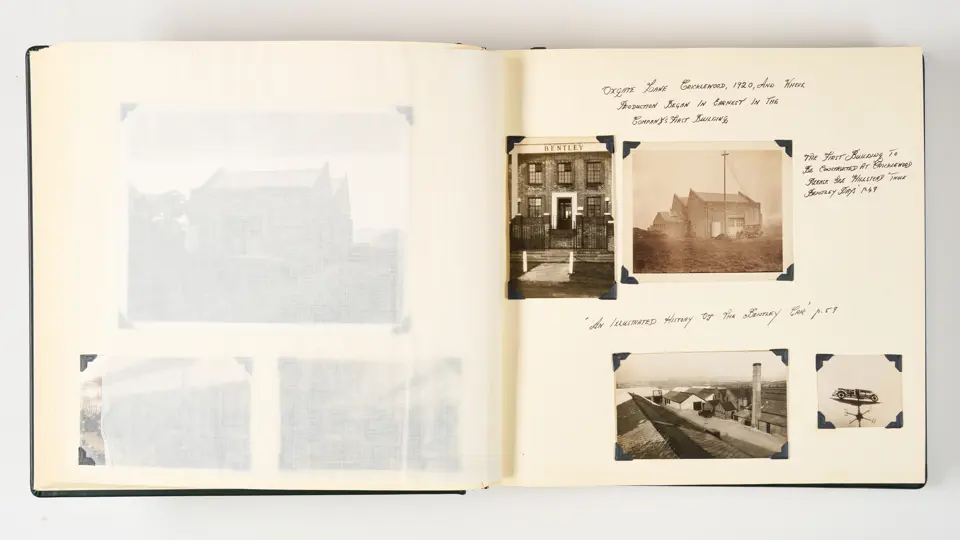 Oxgate Lane Cricklewood, 1920, And Where
Production Began In Earnest In The
Company's First Building
BENTLEY
The First Building To
Be Constructed At Cricklewood
Hillstead
Bentley Days' p.49
"An Illustrated History Of The Bentley Car" p.59